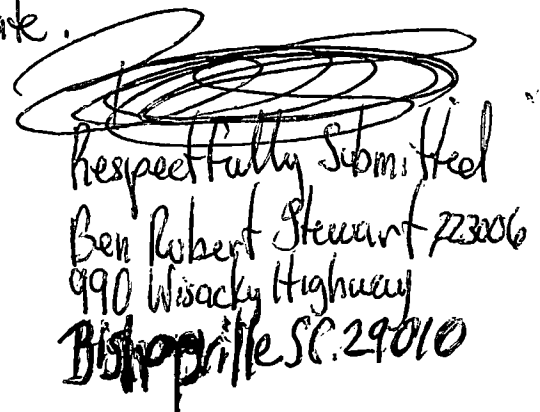 Respectfully Submitted
Ben Robert Stewart 223006
990 Wisacky Highway
Bishopville SC. 29010